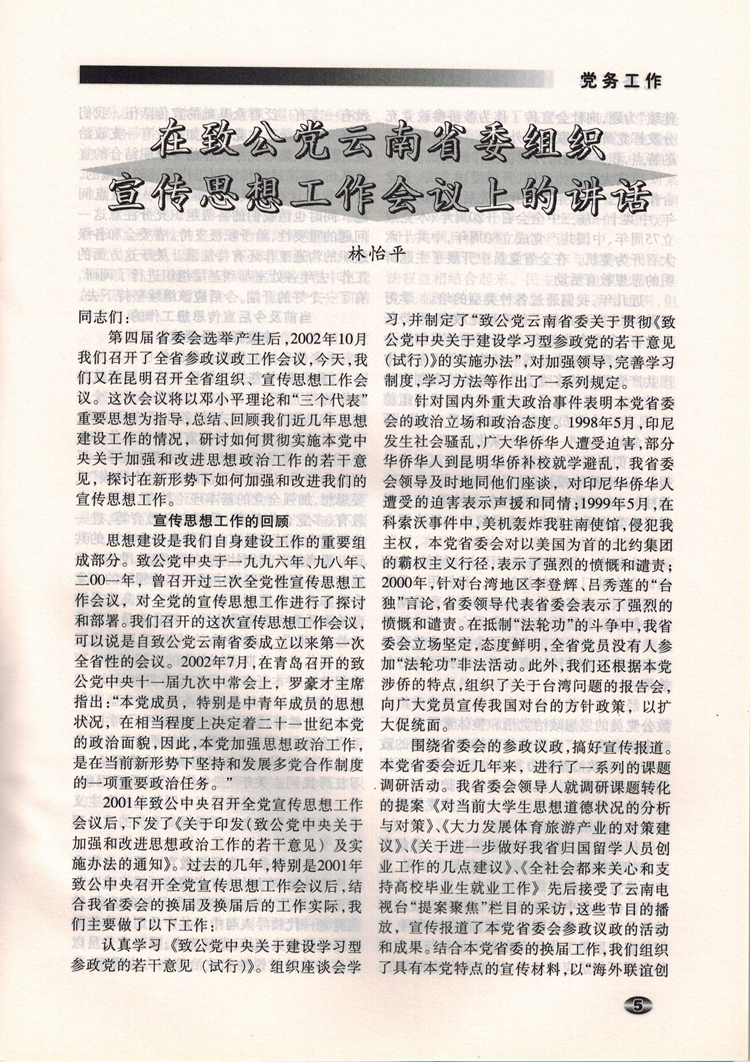 党务工作
在致公党云南省委组织
宣传思想工作会议上的讲话
林怡平
同志们：
第四届省委会选举产生后，2002年10月
我们召开了全省参政议政工作会议，今天，我
们又在昆明召开全省组织、宣传思想工作会
议。这次会议将以邓小平理论和“三个代表”
重要思想为指导，总结、回顾我们近几年思想
建设工作的情况，研讨如何贯彻实施本党中
央关于加强和改进思想政治工作的若干意
见，探讨在新形势下如何加强和改进我们的
宣传思想工作。
宣传思想工作的回顾
思想建设是我们自身建设工作的重要组
成部分。致公党中央于一九九六年、九八年、
二00一年，曾召开过三次全党性宣传思想工
作会议，对全党的宣传思想工作进行了探讨
和部署。我们召开的这次宣传思想工作会议，
可以说是自致公党云南省委成立以来第一次
全省性的会议。2002年7月，在青岛召开的致
公党中央十一届九次中常会上，罗豪才主席
指出：“本党成员，特别是中青年成员的思想
状况，在相当程度上决定着二十一世纪本党
的政治面貌，因此，本党加强思想政治工作，
是在当前新形势下坚持和发展多党合作制度
的一项重要政治任务。”
2001年致公中央召开全党宣传思想工作
会议后，下发了《关于印发（致公党中央关于
加强和改进思想政治工作的若干意见）及实
施办法的通知》。过去的几年，特别是2001年
致公中央召开全党宣传思想工作会议后，结
合我省委会的换届及换届后的工作实际，我
们主要做了以下工作：
认真学习《致公党中央关于建设学习型
参政党的若干意见（试行）》。组织座谈会学
习，并制定了“致公党云南省委关于贯彻《致
公党中央关于建设学习型参政党的若干意见
（试行）》的实施办法”，对加强领导，完善学习
制度，学习方法等作出了一系列规定。
针对国内外重大政治事件表明本党省委
会的政治立场和政治态度。1998年5月，印尼
发生社会骚乱，广大华侨华人遭受迫害，部分
华侨华人到昆明华侨补校就学避乱，我省委
会领导及时地同他们座谈，对印尼华侨华人
遭受的迫害表示声援和同情；1999年5月，在
科索沃事件中，美机轰炸我驻南使馆，侵犯我
主权，本党省委会对以美国为首的北约集团
的霸权主义行径，表示了强烈的愤慨和谴责；
2000年，针对台湾地区李登辉、吕秀莲的“台
独”言论，省委领导代表省委会表示了强烈的
愤慨和谴责。在抵制“法轮功”的斗争中，我省
委会立场坚定，态度鲜明，全省党员没有人参
加“法轮功”非法活动。此外，我们还根据本党
涉侨的特点，组织了关于台湾问题的报告会，
向广大党员宣传我国对台的方针政策，以扩
大促统面。
围绕省委会的参政议政，搞好宣传报道。
本党省委会近几年来，进行了一系列的课题
调研活动。我省委会领导人就调研课题转化
的提案《对当前大学生思想道德状况的分析
与对策》、《大力发展体育旅游产业的对策建
议》、《关于进一步做好我省归国留学人员创
业工作的几点建议》、《全社会都来关心和支
持高校毕业生就业工作》先后接受了云南电
视台“提案聚焦”栏目的采访，这些节目的播
放，宣传报道了本党省委会参政议政的活动
和成果。结合本党省委的换届工作，我们组织
了具有本党特点的宣传材料，以“海外联谊创
5